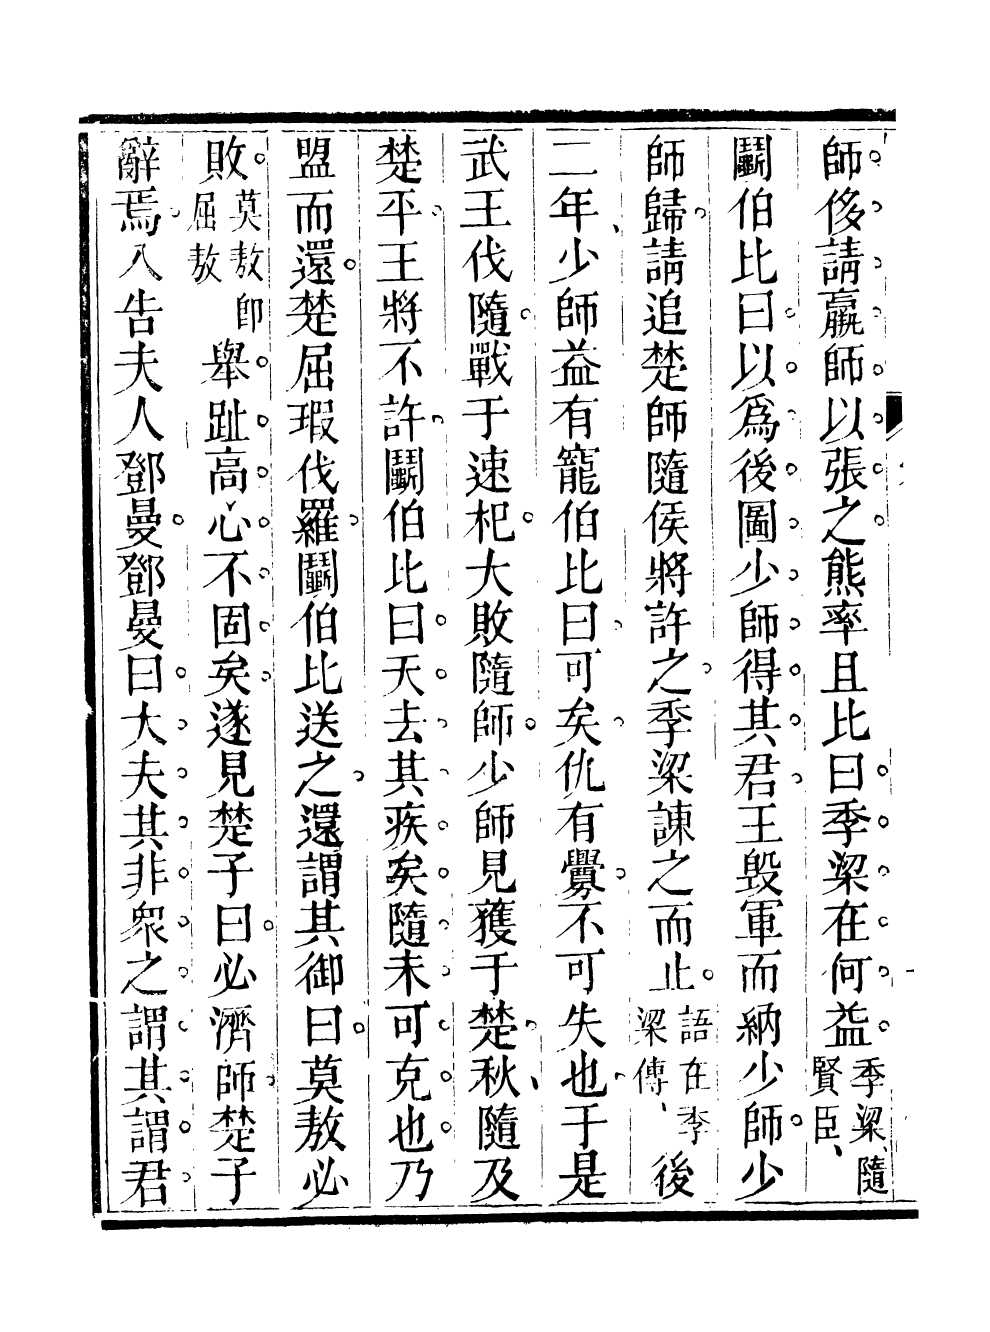 師侈請羸師以張之熊率且比曰季梁在何益季梁隨賢臣
鬭伯比曰以爲後圖少師得其君王毁軍而納少師少
師歸請追楚師隨侯將許之季梁諫之而止語在季梁傳後
二年少師益有寵伯比曰可矣仇有釁不可失也于是
武王伐隨戰于速杞大敗隨師少師見獲于楚秋隨及
楚平王將不許鬭伯比曰天去其疾矣隨未可克也乃
盟而還楚屈瑕伐羅鬭伯比送之還謂其御曰莫敖必
敗莫敖卽屈敖舉趾高心不固矣遂見楚子曰必濟師楚子
辭焉入告夫人鄧曼鄧曼曰大夫其非衆之謂其謂君